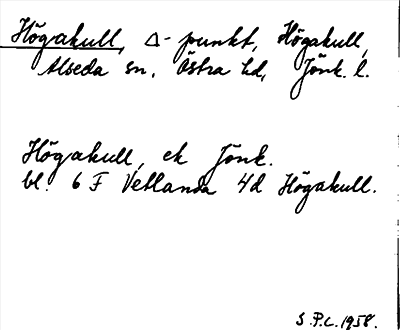 Högakull, Δ-punkt, Högakull,
Alseda sn, Östra hd, Jönk. l.
Högakull, ek Jönk.
bl. 6 F Vetlanda 4d Högakull.
S.P.L. 1958.